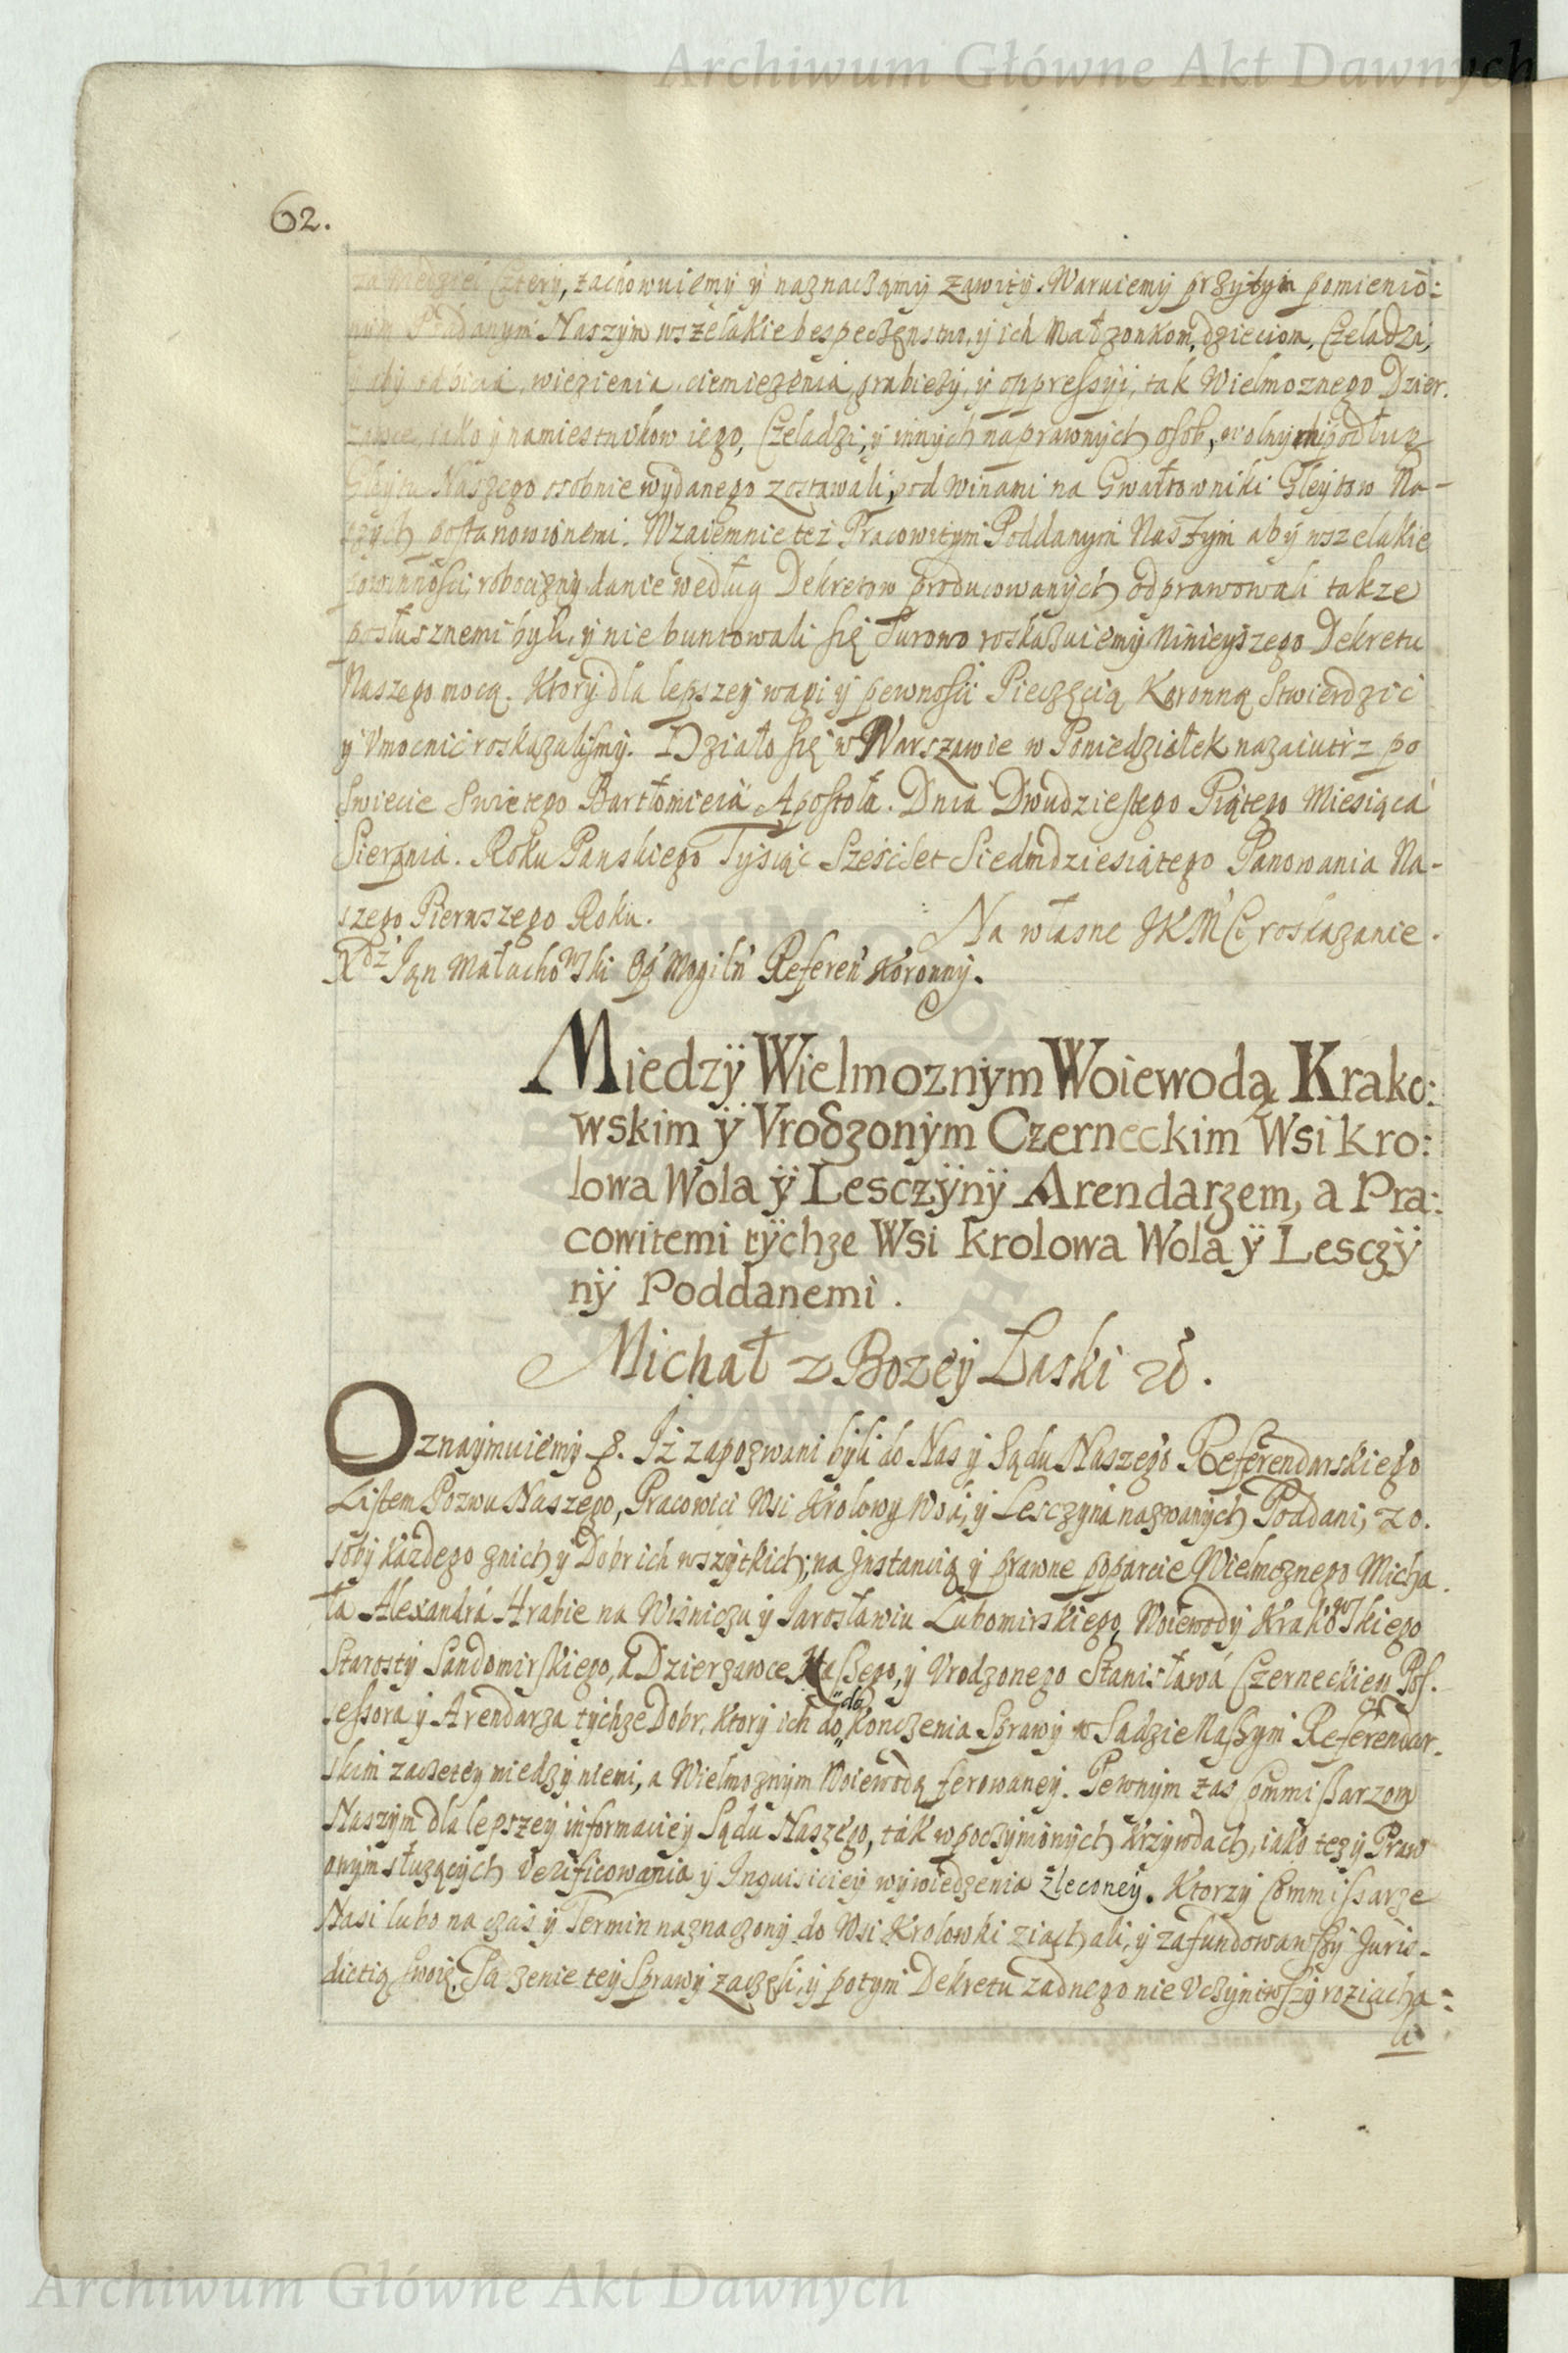 Archiwum Główne Akt Dawnych
62.
za Niedziel Cztery, zachowuiemy y naznaczamy zawity. Waruiemy przytym pomienio:
nym Poddanym Naszym wszelakie bespeczenstwo, y ich Małzonkom, dzieciom, Czeladzi,
wiezienia, ciemiezenia, grabiezy, y oppressyi, tak Wielmoznego Dzier.
zawce, iako y namiestnikow iego, Czeladzi, y innych naprawnych osob, wolnymi podług
Gleytu Naszego osobnie wydanego zostawali, pod winami na Gwałtowniki Gleytow Na-
szych postanowionemi. Wzaiemnie tez Pracowitym Poddanym Naszym aby wszelakie
powinnosci, robocizny, danie według Dekretow producowanych odprawowali takze
posłusznemi byli, y nie buntowali się surowo roskazuiemy Ninieyszego Dekretu
Naszego mocą. Ktory dla lepszey wagi y pewnosci Pieczęcią Koronną Stwierdzic
y Vmocnic roskazalismy. Działo się w Warszawie w Poniedziałek nazaiutrz po
Swiecie Swietego Bartłomieia Apostoła. Dnia Dwudziestego Piątego Miesiąca
Sierpnia. Roku Panskiego Tysiąc Szescset Siedmdziesiątego Panowania Na-
szego Pierwszego Roku. Na własne JKMCi roskazanie.
Xdz Jan Małachowski Op Mogiln Referen Koronny.
Miedzÿ Wielmoznÿm Woiewodą Krako:
wskim ÿ Vrodzonÿm Czerneckim Wsi Kro:
lowa Wola ÿ Lesczÿnÿ Arendarzem, a Pra:
cowitemi tÿchze Wsi Krolowa Wola ÿ Lesczÿ
nÿ Poddanemi.
Michał z Bozey Łaski
Oznaymuiemy Iż zapozwani byli do Nas y Sądu Naszego Referendarskiego
Listem Pozwu Naszego, Pracowici Wsi Krolowy Woli, y Lesczyna nazwanych Poddani, z o.
soby kazdego znich y Dobr ich wszytkich; na Instancią y prawne poparcie Wielmoznego Micha.
ła Alexandra Hrabie na Wisniczu y Iarosławiu Lubomirskiego, Woiewody Krakowskiego
Starosty Sandomirskiego, a Dzierzawce Naszego, y Vrodzonego Stanisława Czerneckiego Pos.
sessora y Arendarza tychze Dobr. Ktory ich do do Konczenia Sprawy w Sądzie Naszym Referendar.
skim zaczetey miedzy niemi, a Wielmoznym Woiewodą ferowaney. Pewnym zas Commissarzom
Naszym dla lepszey informaciey Sądu Naszego, tak w poczynionych krzywdach, iako tez y Praw
onym służących Verificowania y Inquisiciey wywiedzenia zleconey. Ktorzy Commissarze
Nasi lubo na czas y Termin naznaczony do Wsi Krolowki ziachali, y zafundowawszy Juris-
dictią swoię, Sadzenie tey Sprawy zaczęli, y potym Dekretu zadnego nie Vczyniwszy roziacha:
li
Archiwum Główne Akt Dawnych